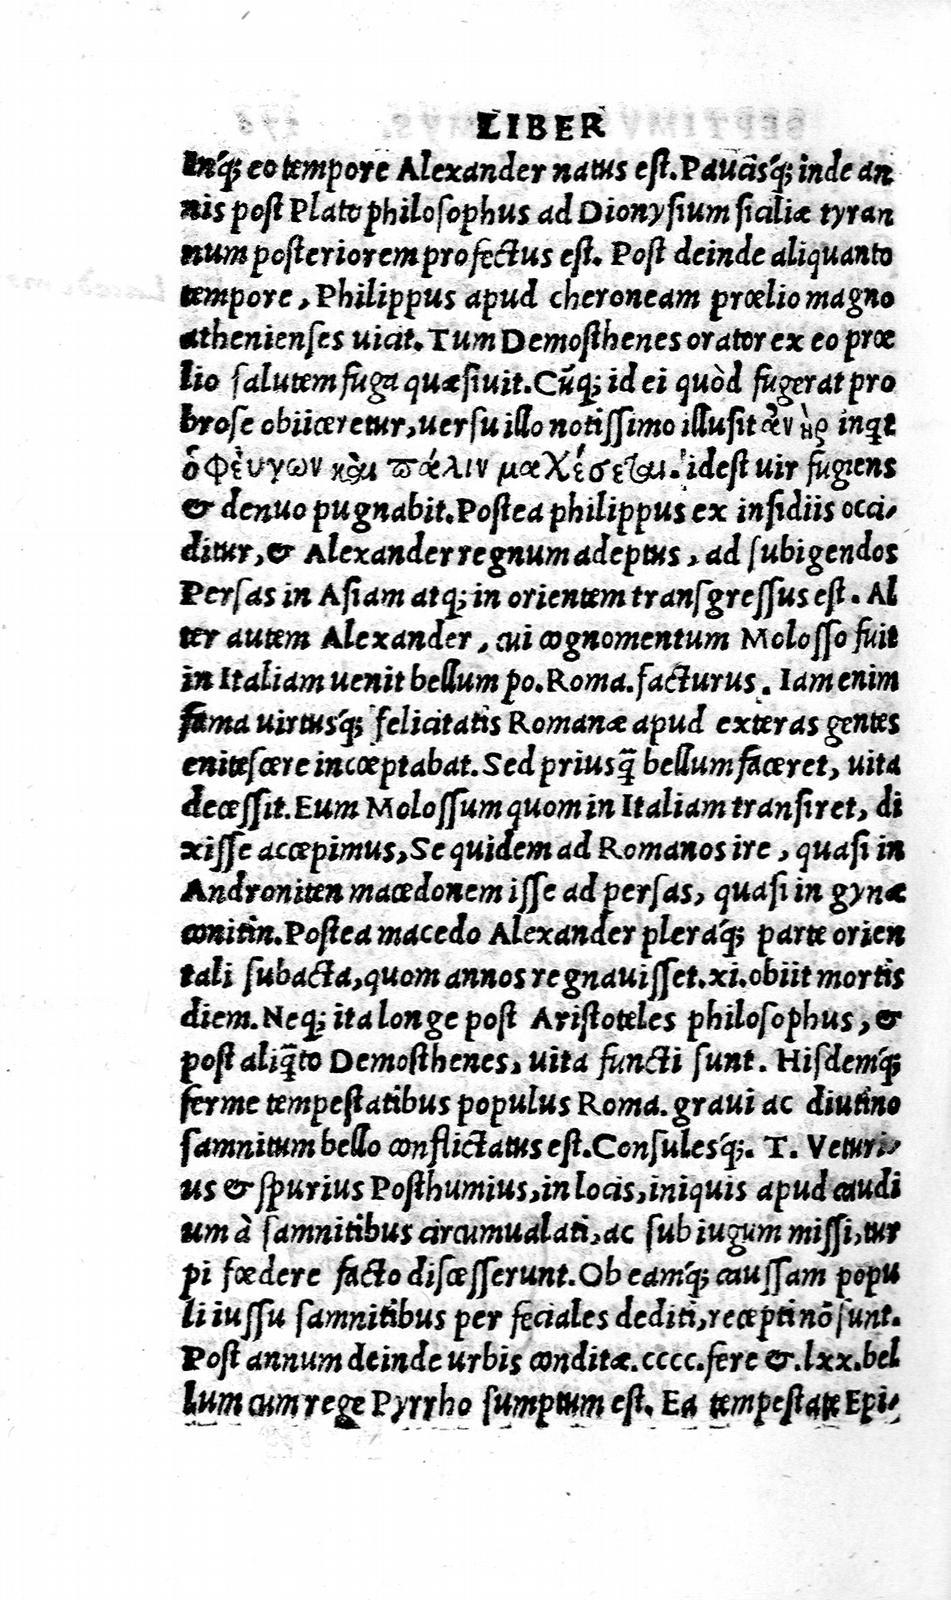 LIBER
Inq́; eo tempore Alexander natus est. Paucisq́; inde an
nis post Plato philosophus ad Dionysium siciliæ tyran
num posteriorem profectus est. Post deinde aliquanto
tempore, Philippus apud cheroneam prœlio magno
athenienses uicit. Tum Demosthenes orator ex eo prœ
lio salutem fuga quæsiuit. Cũq; id ei quòd fugerat pro
brose obiiceretur, uersu illo notissimo illusit ἀν ὴρ inqt
ὁ φεύγων καὶ πάλιν μαχέσεται. idest uir fugiens
& denuo pugnabit. Postea philippus ex insidiis occi-
ditur, & Alexander regnum adeptus, ad subigendos
Persas in Asiam atq; in orientem transgressus est. Al
ter autem Alexander, cui cognomentum Molosso fuit
in Italiam uenit bellum po. Roma. facturus. Iam enim
fama uirtusq́; felicitatis Romanæ apud exteras gentes
enitescere incœptabat. Sed priusq̃ bellum faceret, uita
decessit. Eum Molossum quom in Italiam transiret, di
xisse accepimus, Se quidem ad Romanos ire, quasi in
Androniten macedonem isse ad persas, quasi in gynæ
conitin. Postea macedo Alexander pleraq́; parte orien
tali subacta, quom annos regnauisset. xi. obiit mortis
diem. Neq; ita longe post Aristoteles philosophus, &
post aliq̃to Demosthenes, uita functi sunt. Hisdemq́;
ferme tempestatibus populus Roma. graui ac diutino
samnitum bello conflictatus est. Consulesq́;. T. Veturi-
us & spurius Posthumius, in locis, iniquis apud caudi
um à samnitibus circumualati, ac sub iugum missi, tur
pi fœdere facto discesserunt. Ob eamq́; caussam popu
li iussu samnitibus per feciales dediti, recepti nõ sunt.
Post annum deinde urbis conditæ. cccc. fere &. lxx. bel
lum cum rege Pyrrho sumptum est. Ea tempestate Epi-